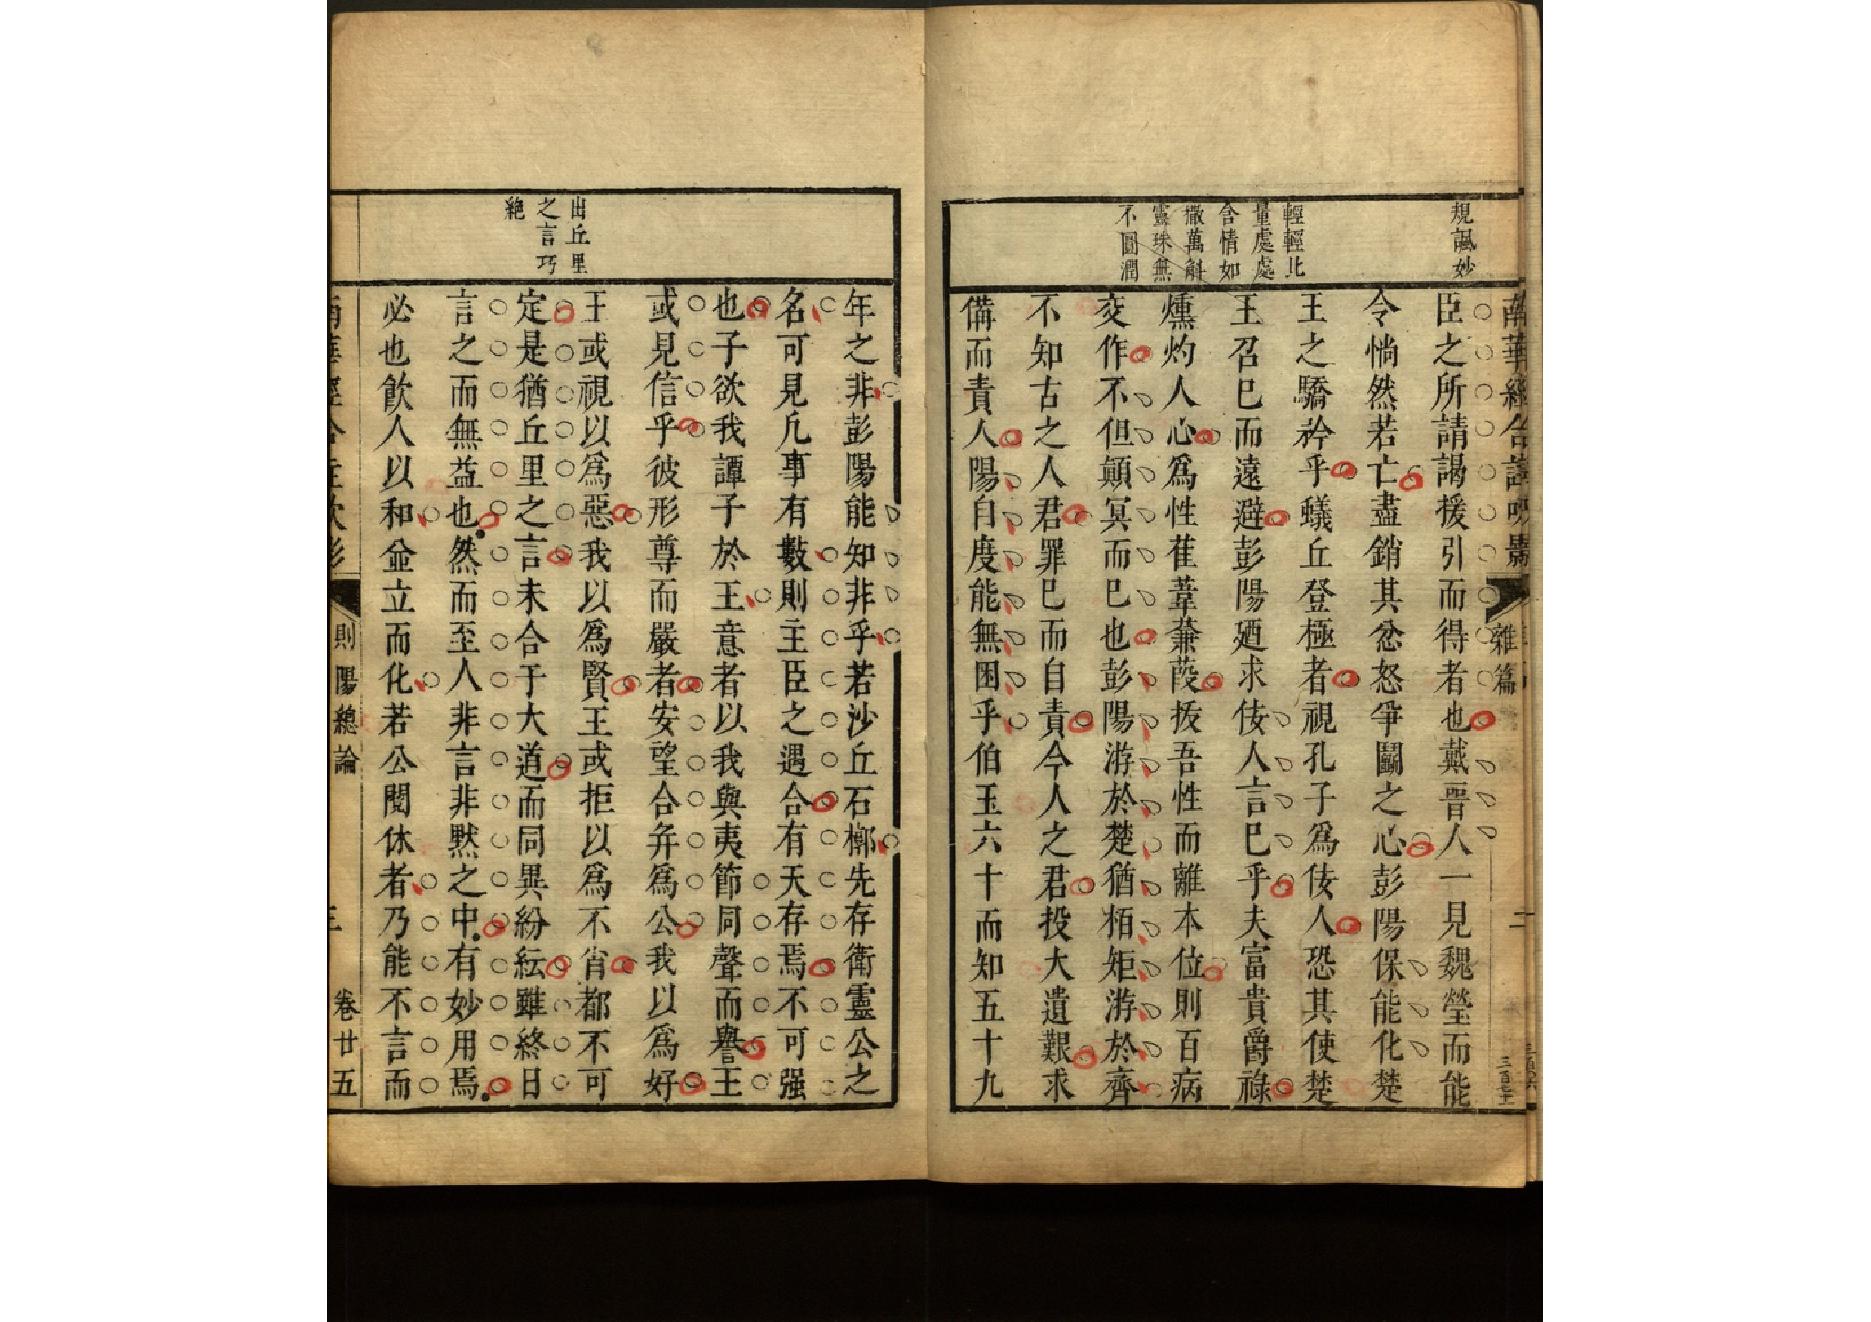 規諷妙
輕輕比
量處處
含情如
撒萬斛
靈珠無
不圓潤
臣之所請謁援引而得者也戴晋人一見魏瑩而能
令惝然若亡盡銷其忿怒爭鬭之心彭陽保能化楚
王之驕矜乎蟻丘登極者視孔子爲佞人恐其使楚
王召巳而遠避彭陽廼求佞人言巳乎夫富貴爵祿
燻灼人心爲性萑葦蒹葭拔吾性而離本位則百病
交作不但顛冥而巳也彭陽游於楚猶栢矩游於齊
不知古之人君罪巳而自責今人之君投大遺艱求
備而責人陽自度能無困乎伯玉六十而知五十九
出丘里
之言巧
絶
年之非彭陽能知非乎若沙丘石槨先存衛靈公之
名可見凡事有數則主臣之遇合有天存焉不可强
也子欲我譚子於王意者以我與夷節同聲而譽王
或見信乎彼形尊而嚴者安望合并爲公我以爲好
王或視以爲惡我以爲賢王或拒以爲不肖都不可
定是猶丘里之言未合于大道而同異紛紜雖終日
言之而無益也然而至人非言非黙之中有妙用焉
必也飲人以和並立而化若公閱休者乃能不言而
則陽總論
卷廿五